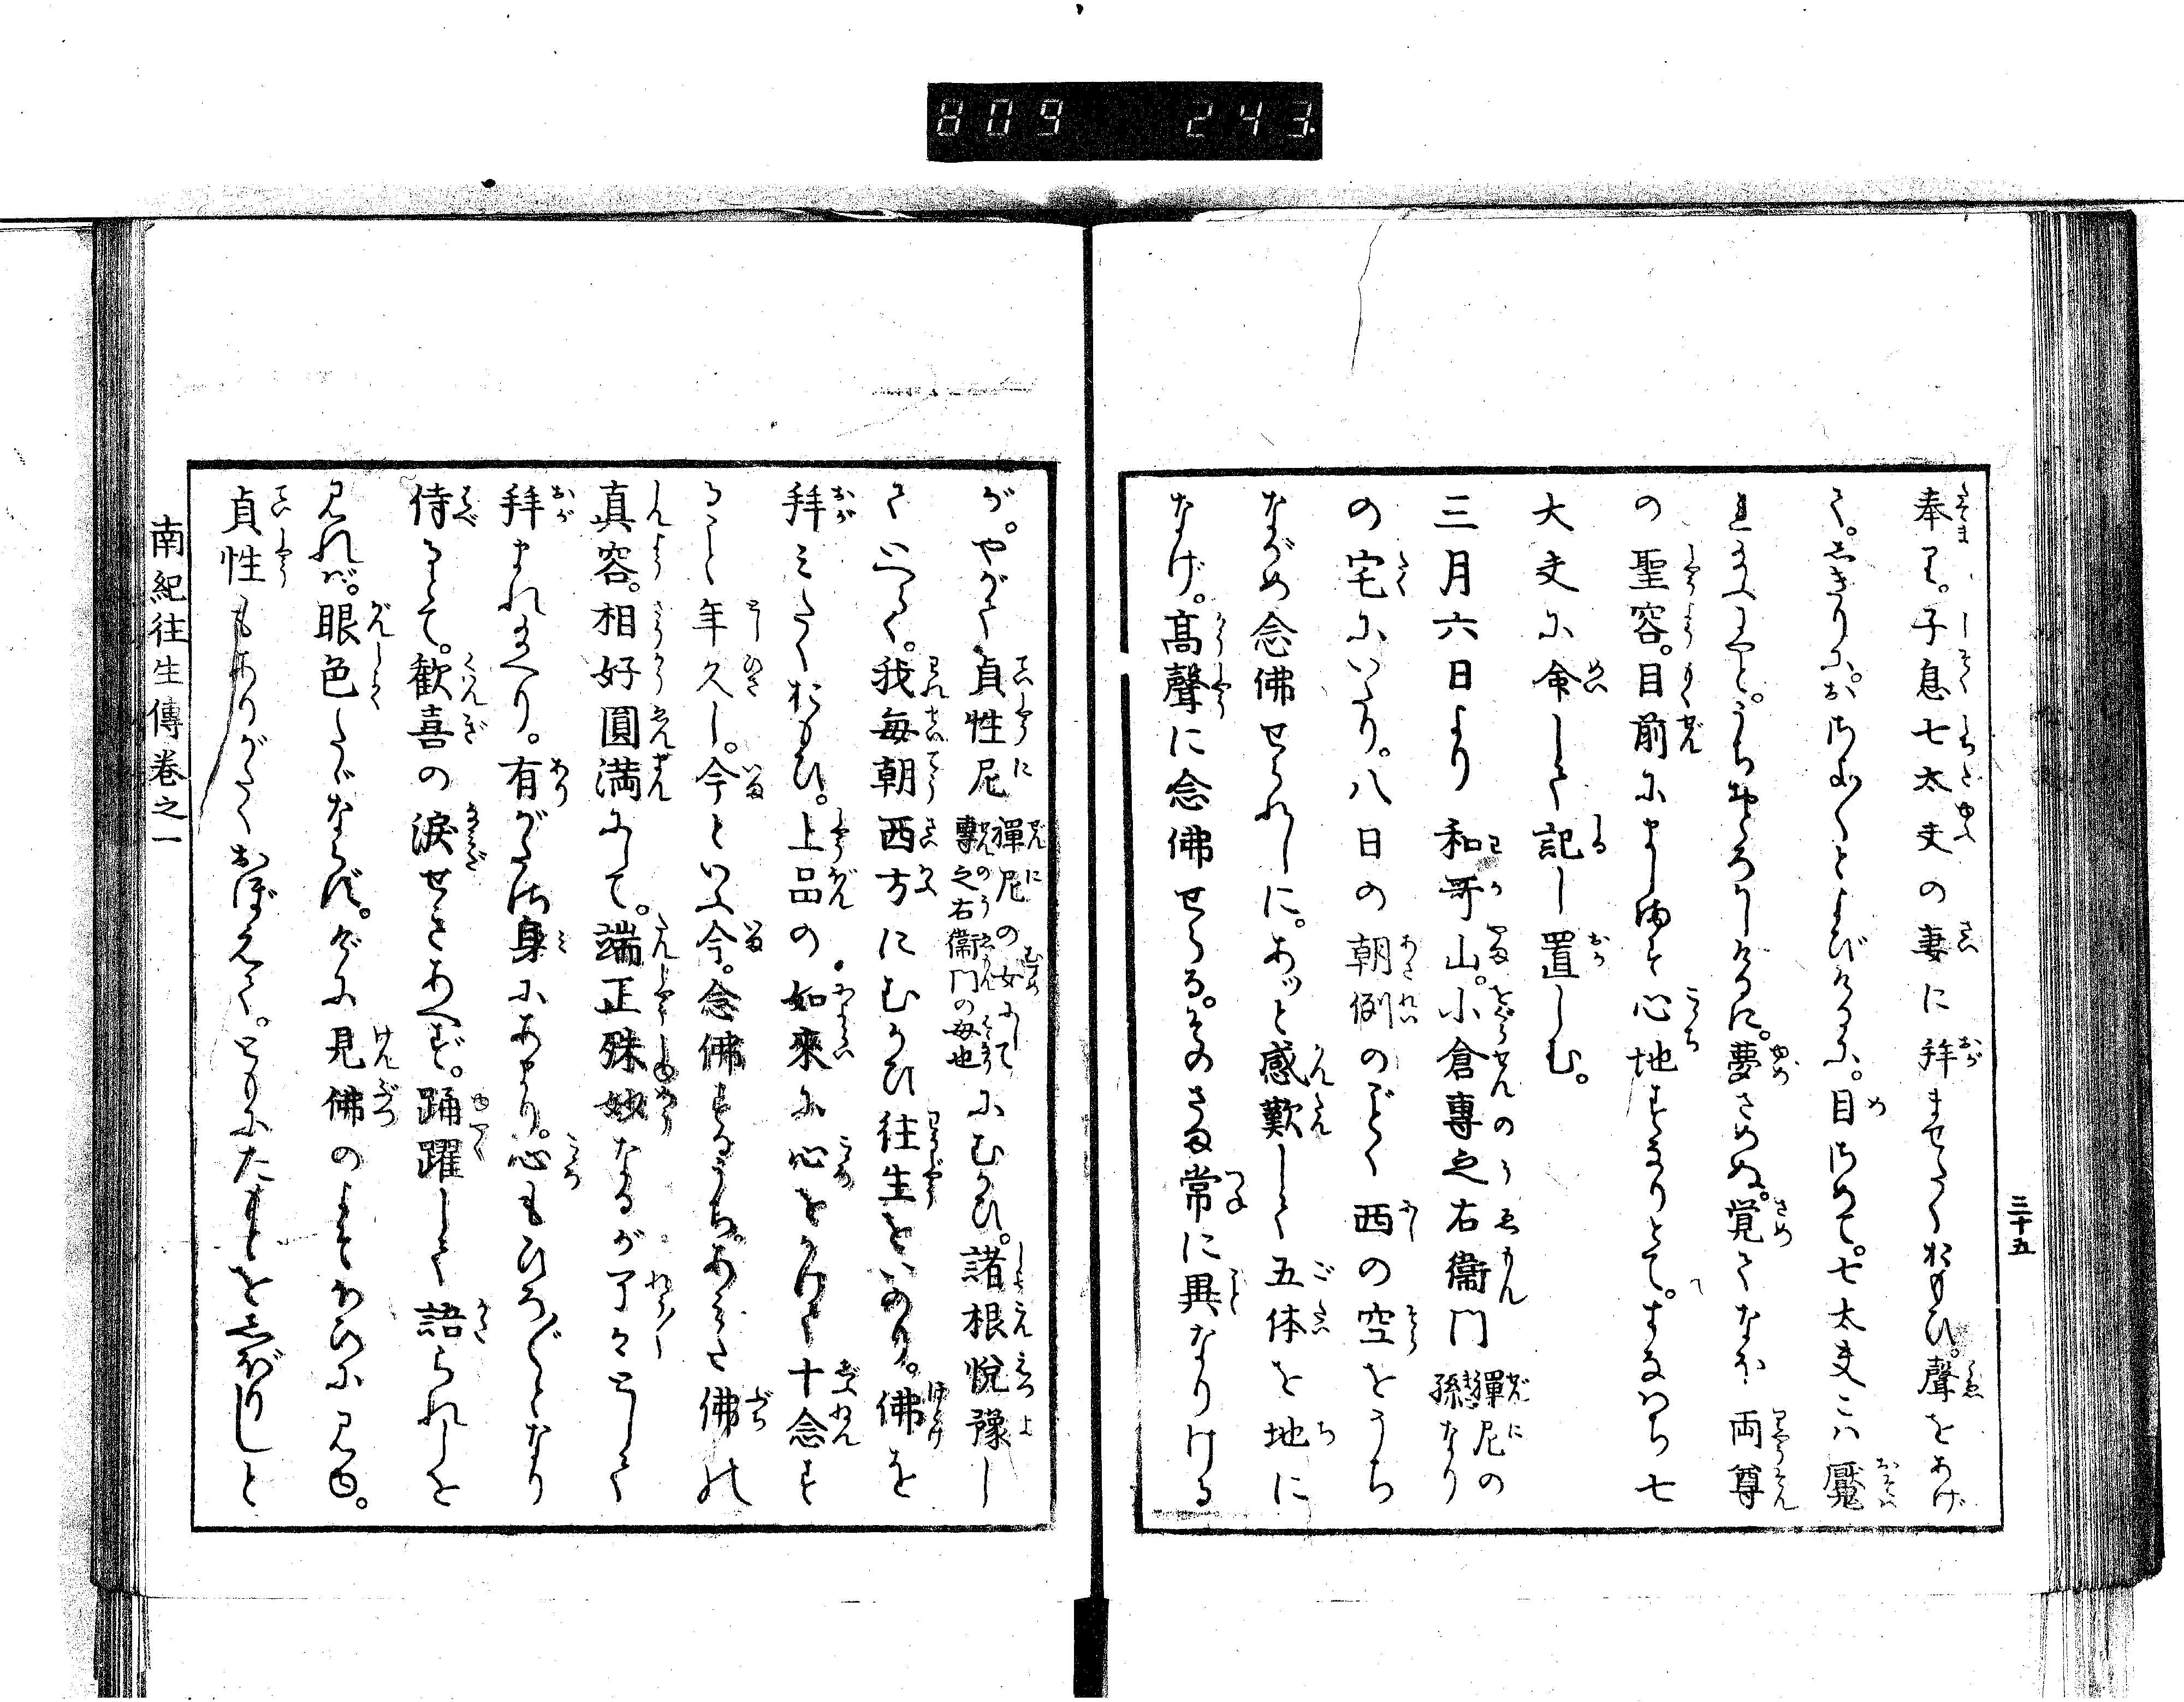 809 243
三十五
奉る。子息七太夫の妻に拝ませたくおもひ。聲をあげ
て。しきりに。お町〳〵とよびけるに。目さめて。七太夫こは魘
れ玉ふにやと。うちおどろかしけるに。夢さめぬ。覚てなほ両尊
の聖容。目前にまします心地すなりとて。すなはち七
大夫に命して記し置しむ。
三月六日より和哥山。小倉専之右衛門禪尼の孫なり
の宅にいたり。八日の朝例のごとく西の空をうち
ながめ念佛せられしに。あつと感歎して五体を地に
なげ。高聲に念佛せらる。そのさま常に異なりける
が。やがて貞性尼禪尼の女にして専之右衛門の母也にむかひ。諸根悦豫し
ていはく。我毎朝西方にむかひ往生をいのり。佛を
拝みたくおもひ。上品の如來に心をかけて十念す
ること年久し。今といふ今。念佛するうち。あみだ佛の
真容。相好圓満にして。端正殊妙なるが了々として
拝まれ玉へり。有がたき身にあまり。心もひろ〴〵となり
侍るとて。歓喜の涙せきあへず。踊躍して語られしを
見れば。眼色たゞならず。げに見佛のよそおひに見ゆ。
貞性もありがたくおぼえて。ともにたもとをしぼりしと
南紀往生傳巻之一